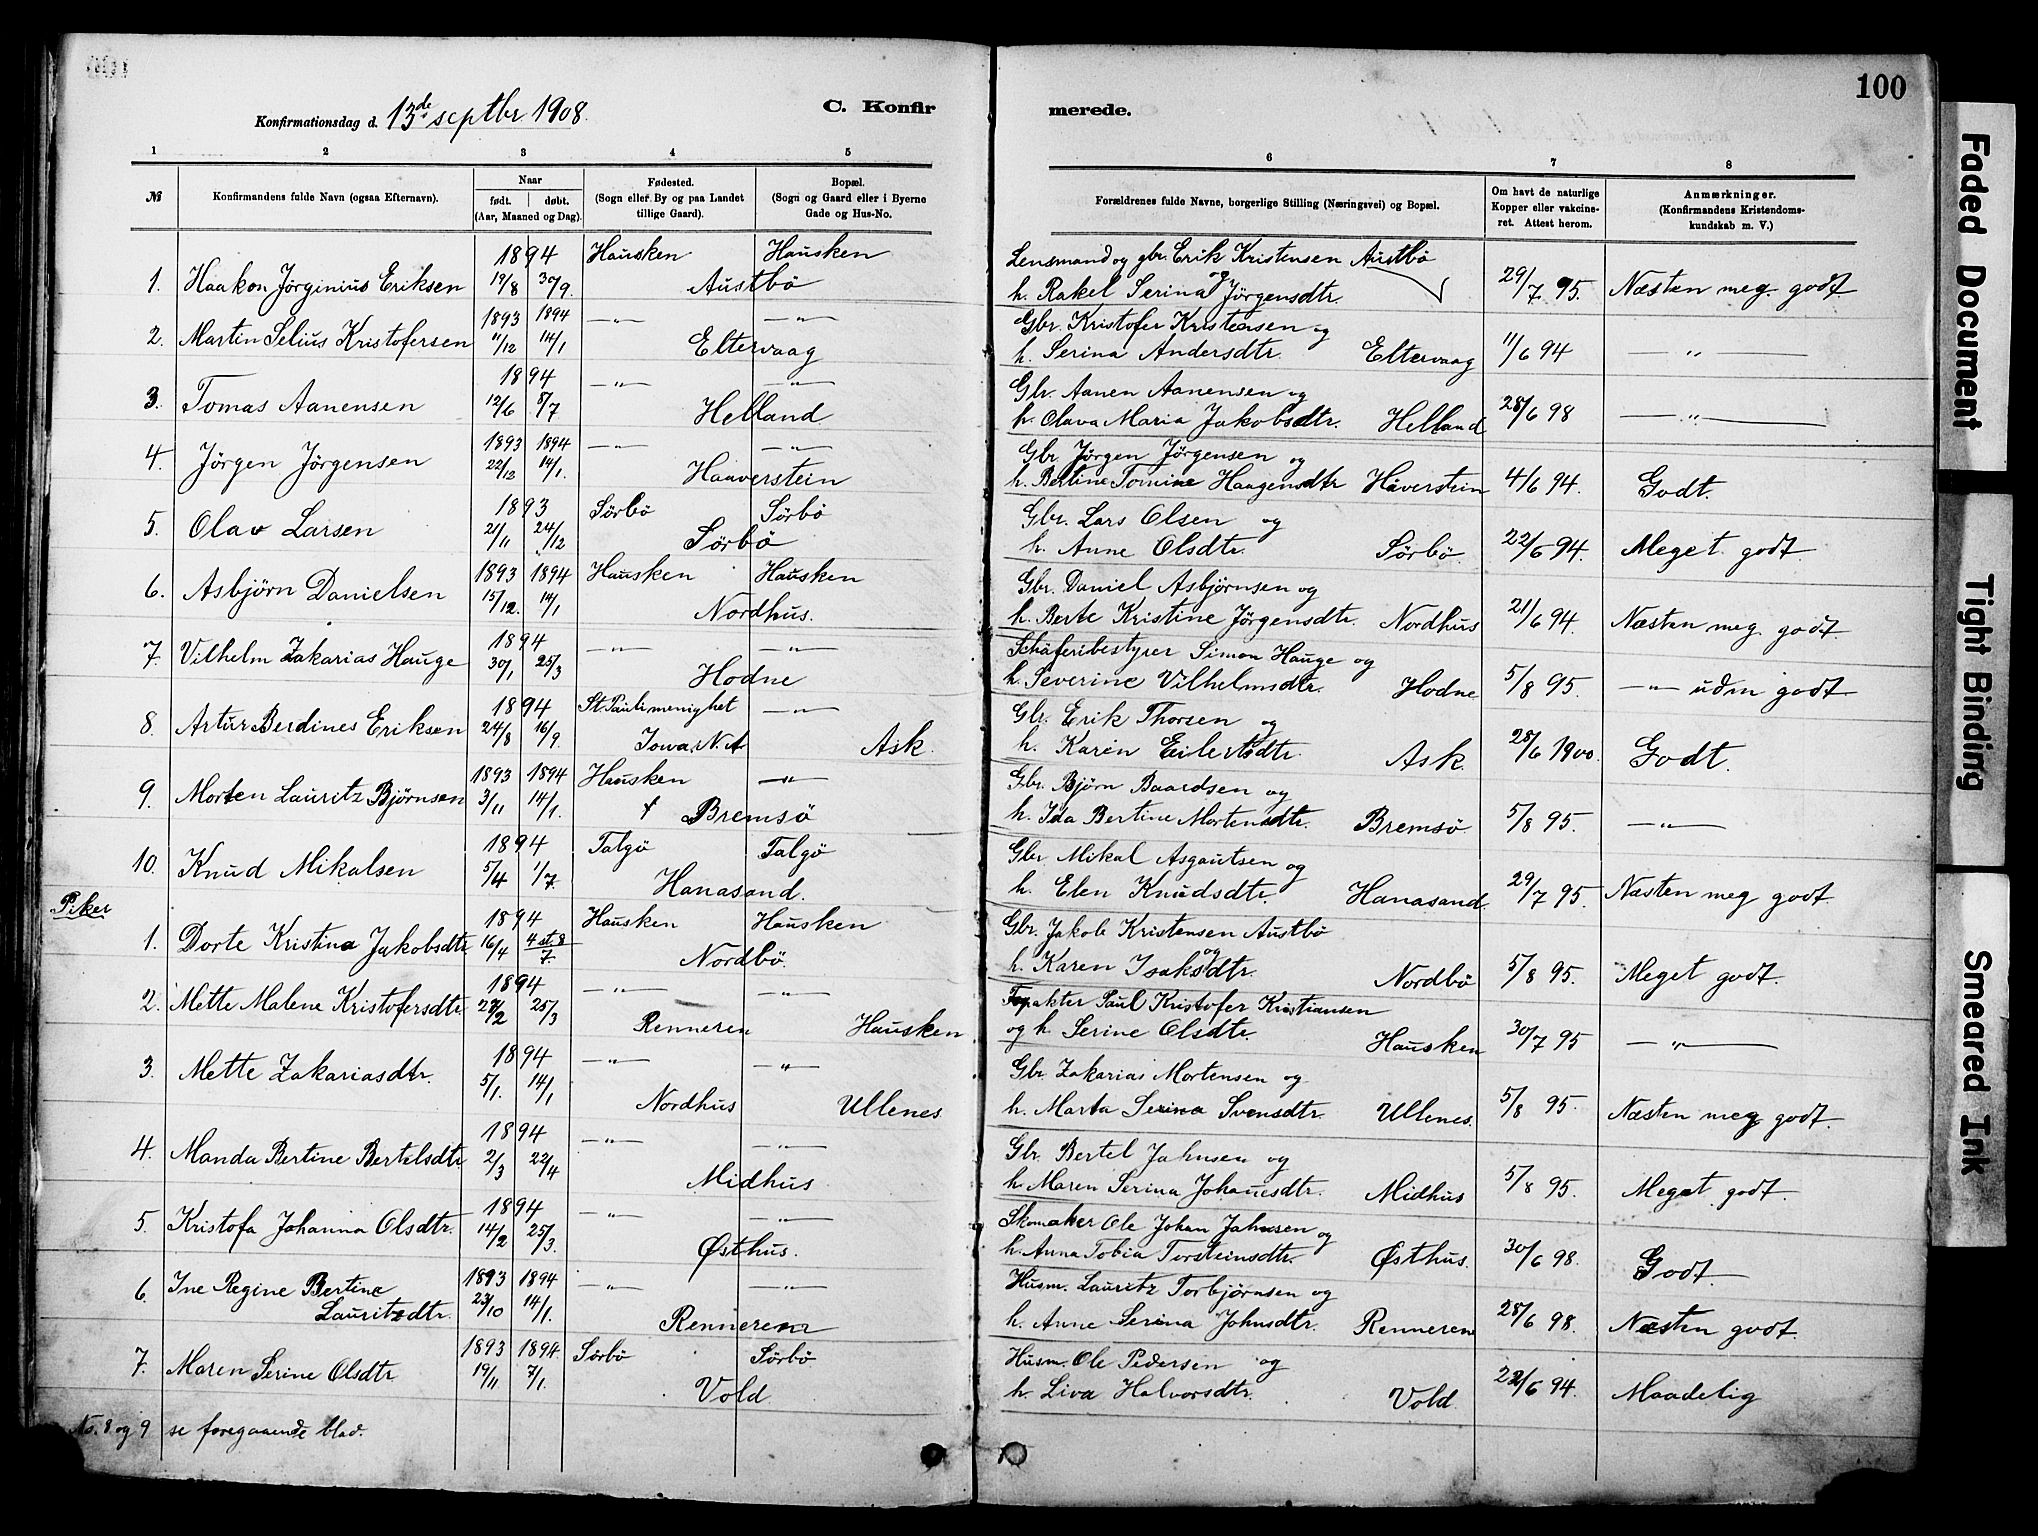 100
Konfirmationsdag d. 13de septbr 1908.
C. Konfir
merede.
1 2 3 4 5 6 7 8
№
Konfirmandens fulde Navn (ogsaa Efternavn).
Naar
født. døbt.
(Aar, Maaned og Dag).
Fødested.
(Sogn eller By og paa Landet
tillige Gaard).
Bopæl.
(Sogn og Gaard eller i Byerne
Gade og Hus-No.
Forældrenes fulde Navne, borgerlige Stilling (Næringsvei) og Bopæl.
Om havt de naturlige
Kopper eller vakcine-
ret. Attest herom.
Anmærkninger.
(Konfirmandens Kristendoms-
kundskab m. V.)
1894 Hausken Hausken Lensmand og gbr. Erik Kristensen Austbö
1. Haakon Jörginius Eriksen 19/8 30/9. Austbö og h. Rakel Serina Jörgensdtr. 29/7 95. Næsten meg. godt
1893 1894 —"— —"— Gbr. Kristofer Kristensen og
2. Martin Selius Kristofersen 11/12 14/1 Eltervaag h. Serina Andersdtr. Eltervaag 11/6 94 —"—
1894 —"— —"— Gbr. Aanen Aanensen og
3. Tomas Aanensen 12/6 8/7 Helland h. Olava Maria Jakobsdtr. Helland 28/6 98 —"—
1893 1894 —"— —"— Gbr. Jörgen Jörgensen og
4. Jörgen Jörgensen 22/12 14/1. Haaverstein h. Bertine Tomine Haagensdtr Håverstein 4/6 94. Godt.
1893 Sörbö Sörbö Gbr. Lars Olsen og
5. Olav Larsen 21/11 24/12 Sörbö h. Anne Olsdtr. Sörbö. 22/6 94. Meget godt
1893 1894 Hausken Hausken Gbr. Daniel Asbjörnsen og
6. Asbjörn Danielsen 15/12. 14/1 Nordhus. h. Berte Kristine Jörgensdtr. Nordhus 21/6 94. Næsten meg godt
1894 —"— —"— Schäferibestyrer Simon Hauge og
7. Vilhelm Zakarias Hauge 30/1 25/3 Hodne h. Severine Vilhelmsdtr. Hodne 5/8 95. —"— uden godt
1894 St. Pauli menighet —"— Gbr. Erik Thorsen og
8. Artur Berdines Eriksen 24/8 16/9. Iowa, N. A Ask. h. Karen Eilertsdtr. Ask. 28/6 1900. Godt.
1893 1894 Hausken —"— Gbr. Björn Baardsen og
9. Morten Lauritz Björnsen 3/11 14/1. Bremsö h. Ida Bertine Mortensdtr. Bremsö 5/8 95. —"—
1894 Talgö Talgö Gbr. Mikal Asgautsen og
10. Knud Mikalsen 5/4 1/7. Hanasand. h. Elen Knudsdtr. Hanasand. 29/7 95. Næsten meg godt
Piker
1894 Hausken Hausken Gbr. Jakob Kristensen Austbö
1. Dorte Kristina Jakobsdtr. 16/4 4 st. 8/7. Nordbö. og h. Karen Isaksdtr. Nordbö 5/8 95. Meget godt.
1894 —"— —"— Forpakter Paul Kristofer Kristiansen
2. Mette Malene Kristofersdtr 22/2 25/3 Renneren Hausken og h. Serine Olsdtr. Hausken 30/7 95 —"—
1894 —"— —"— Gbr. Zakarias Mortensen og
3. Mette Zakariasdtr. 5/1. 14/1 Nordhus Ullenes h. Marta Serina Svensdtr. Ullenes. 5/8 95. Næsten meg godt.
1894 —"— —"— Gbr. Bertel Jahnsen og
4. Manda Bertine Bertelsdtr 2/3 22/4 Midhus h. Maren Serina Johanesdtr. Midhus 5/8 95. Meget godt.
1894 —"— —"— Skomaker Ole Johan Jahnsen og
5. Kristofa Johanna Olsdtr. 14/2 25/3. Østhus. h. Anna Tobia Torsteinsdtr. Østhus. 30/6 98. Godt.
1893 1894 —"— —"— Husm. Lauritz Torbjörnsen og
6. Ine Regine Bertine Lauritzdtr. 23/10 14/1. Renneren h. Anne Serina Johnsdtr. Renneren 28/6 98. Næsten godt.
1893 1894 Sörbö Sörbö Husm. Ole Pedersen og
7. Maren Serine Olsdtr 19/11 7/1. Vold h. Liva Halvorsdtr. Vold 22/6 94. Maadelig
No. 8 og 9 se foregaaende blad.
Faded Document
Tight Binding
Smeared Ink